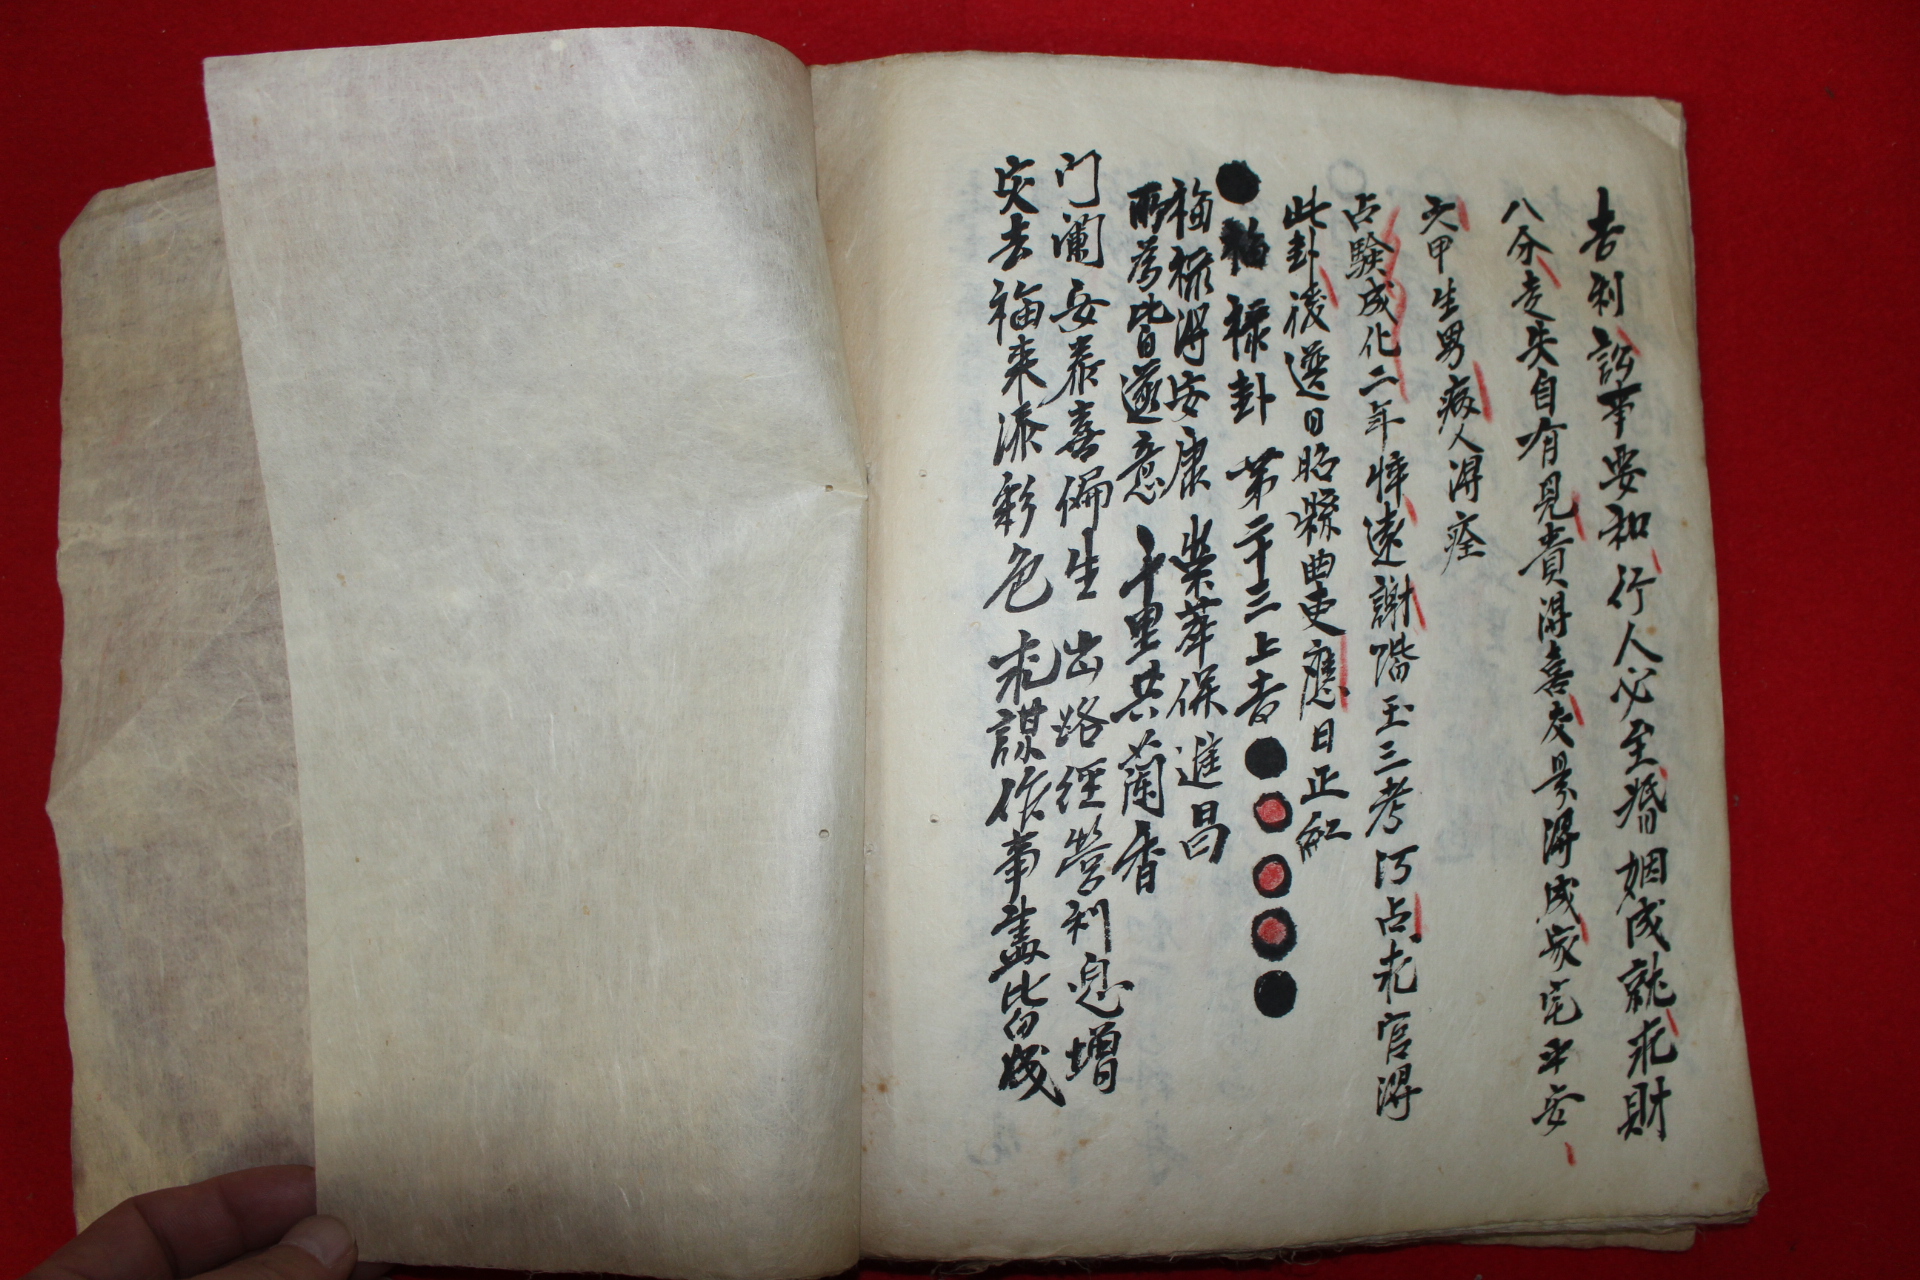 吉利 訟事要和 行人必至 婚姻成就 求財
八分 走失自有見 貴得喜 交易得成 家宅平安
六甲生男 病人得痊
占驗成化二年 遠謝階 三考 占求官得
此卦後選日昭縣典吏應日正紅
●福祿卦 第二十三上吉 ●
福祿得安康 榮華保進昌
所為皆遂意 千里共蘭香
门瀾安泰喜偏生 出路經營利息增
灾去福来添彩色 求謀作事盡皆成